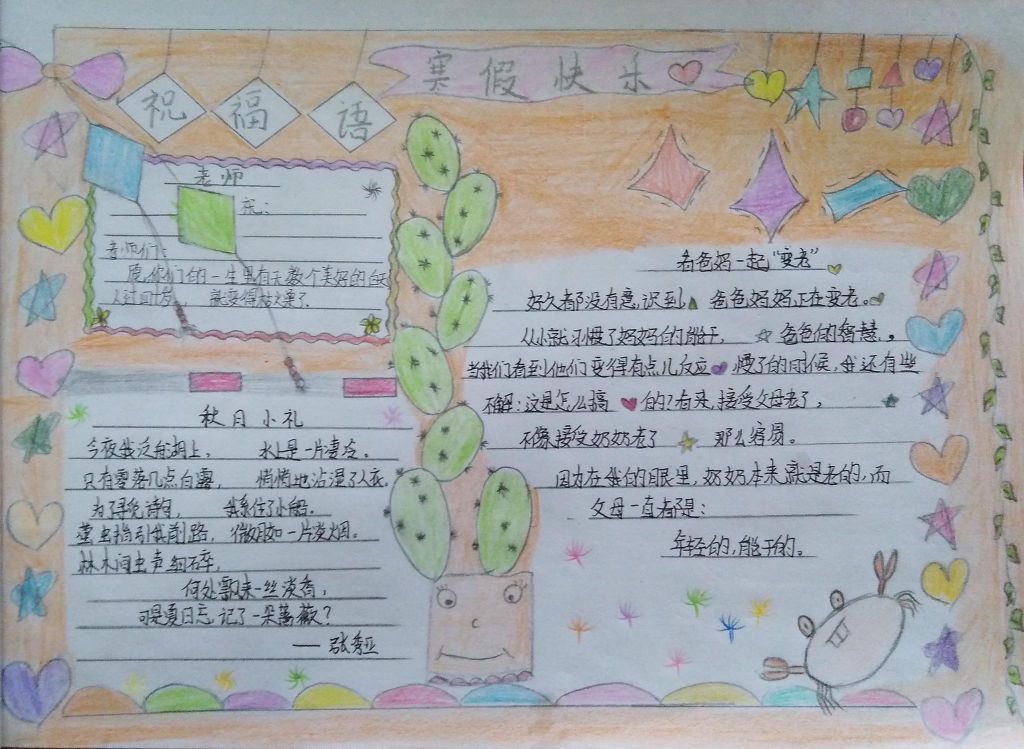 寒假快乐
祝福语
老师
祝:
老师们:
愿你们的一生里有无数个美好的白天
秋月小礼
今夜我泛舟湖上, 水上是一片凄冷。
只有零落几点白露, 悄悄地沾湿了人衣。
为了寻觅诗句, 我系住了小船。
萤虫指引我前路, 微明如一片炎烟。
林木间虫声细碎,
何处飘来一丝淡香,
可是夏日忘记了一朵蔷薇?
—— 张秀亚
看爸妈一起“变老”
好久都没有意识到 爸爸妈妈正在变老。
从小就习惯了妈妈的能干, 爸爸的智慧,。
当我们看到他们变得有点儿反应 慢了的时候,我还有些
不解:这是怎么搞 的?看来,接受父母老了,
不像接受奶奶老了 那么容易。
因为在我的眼里,奶奶本来就是老的,而
父母一直都是:
年轻的,能干的。